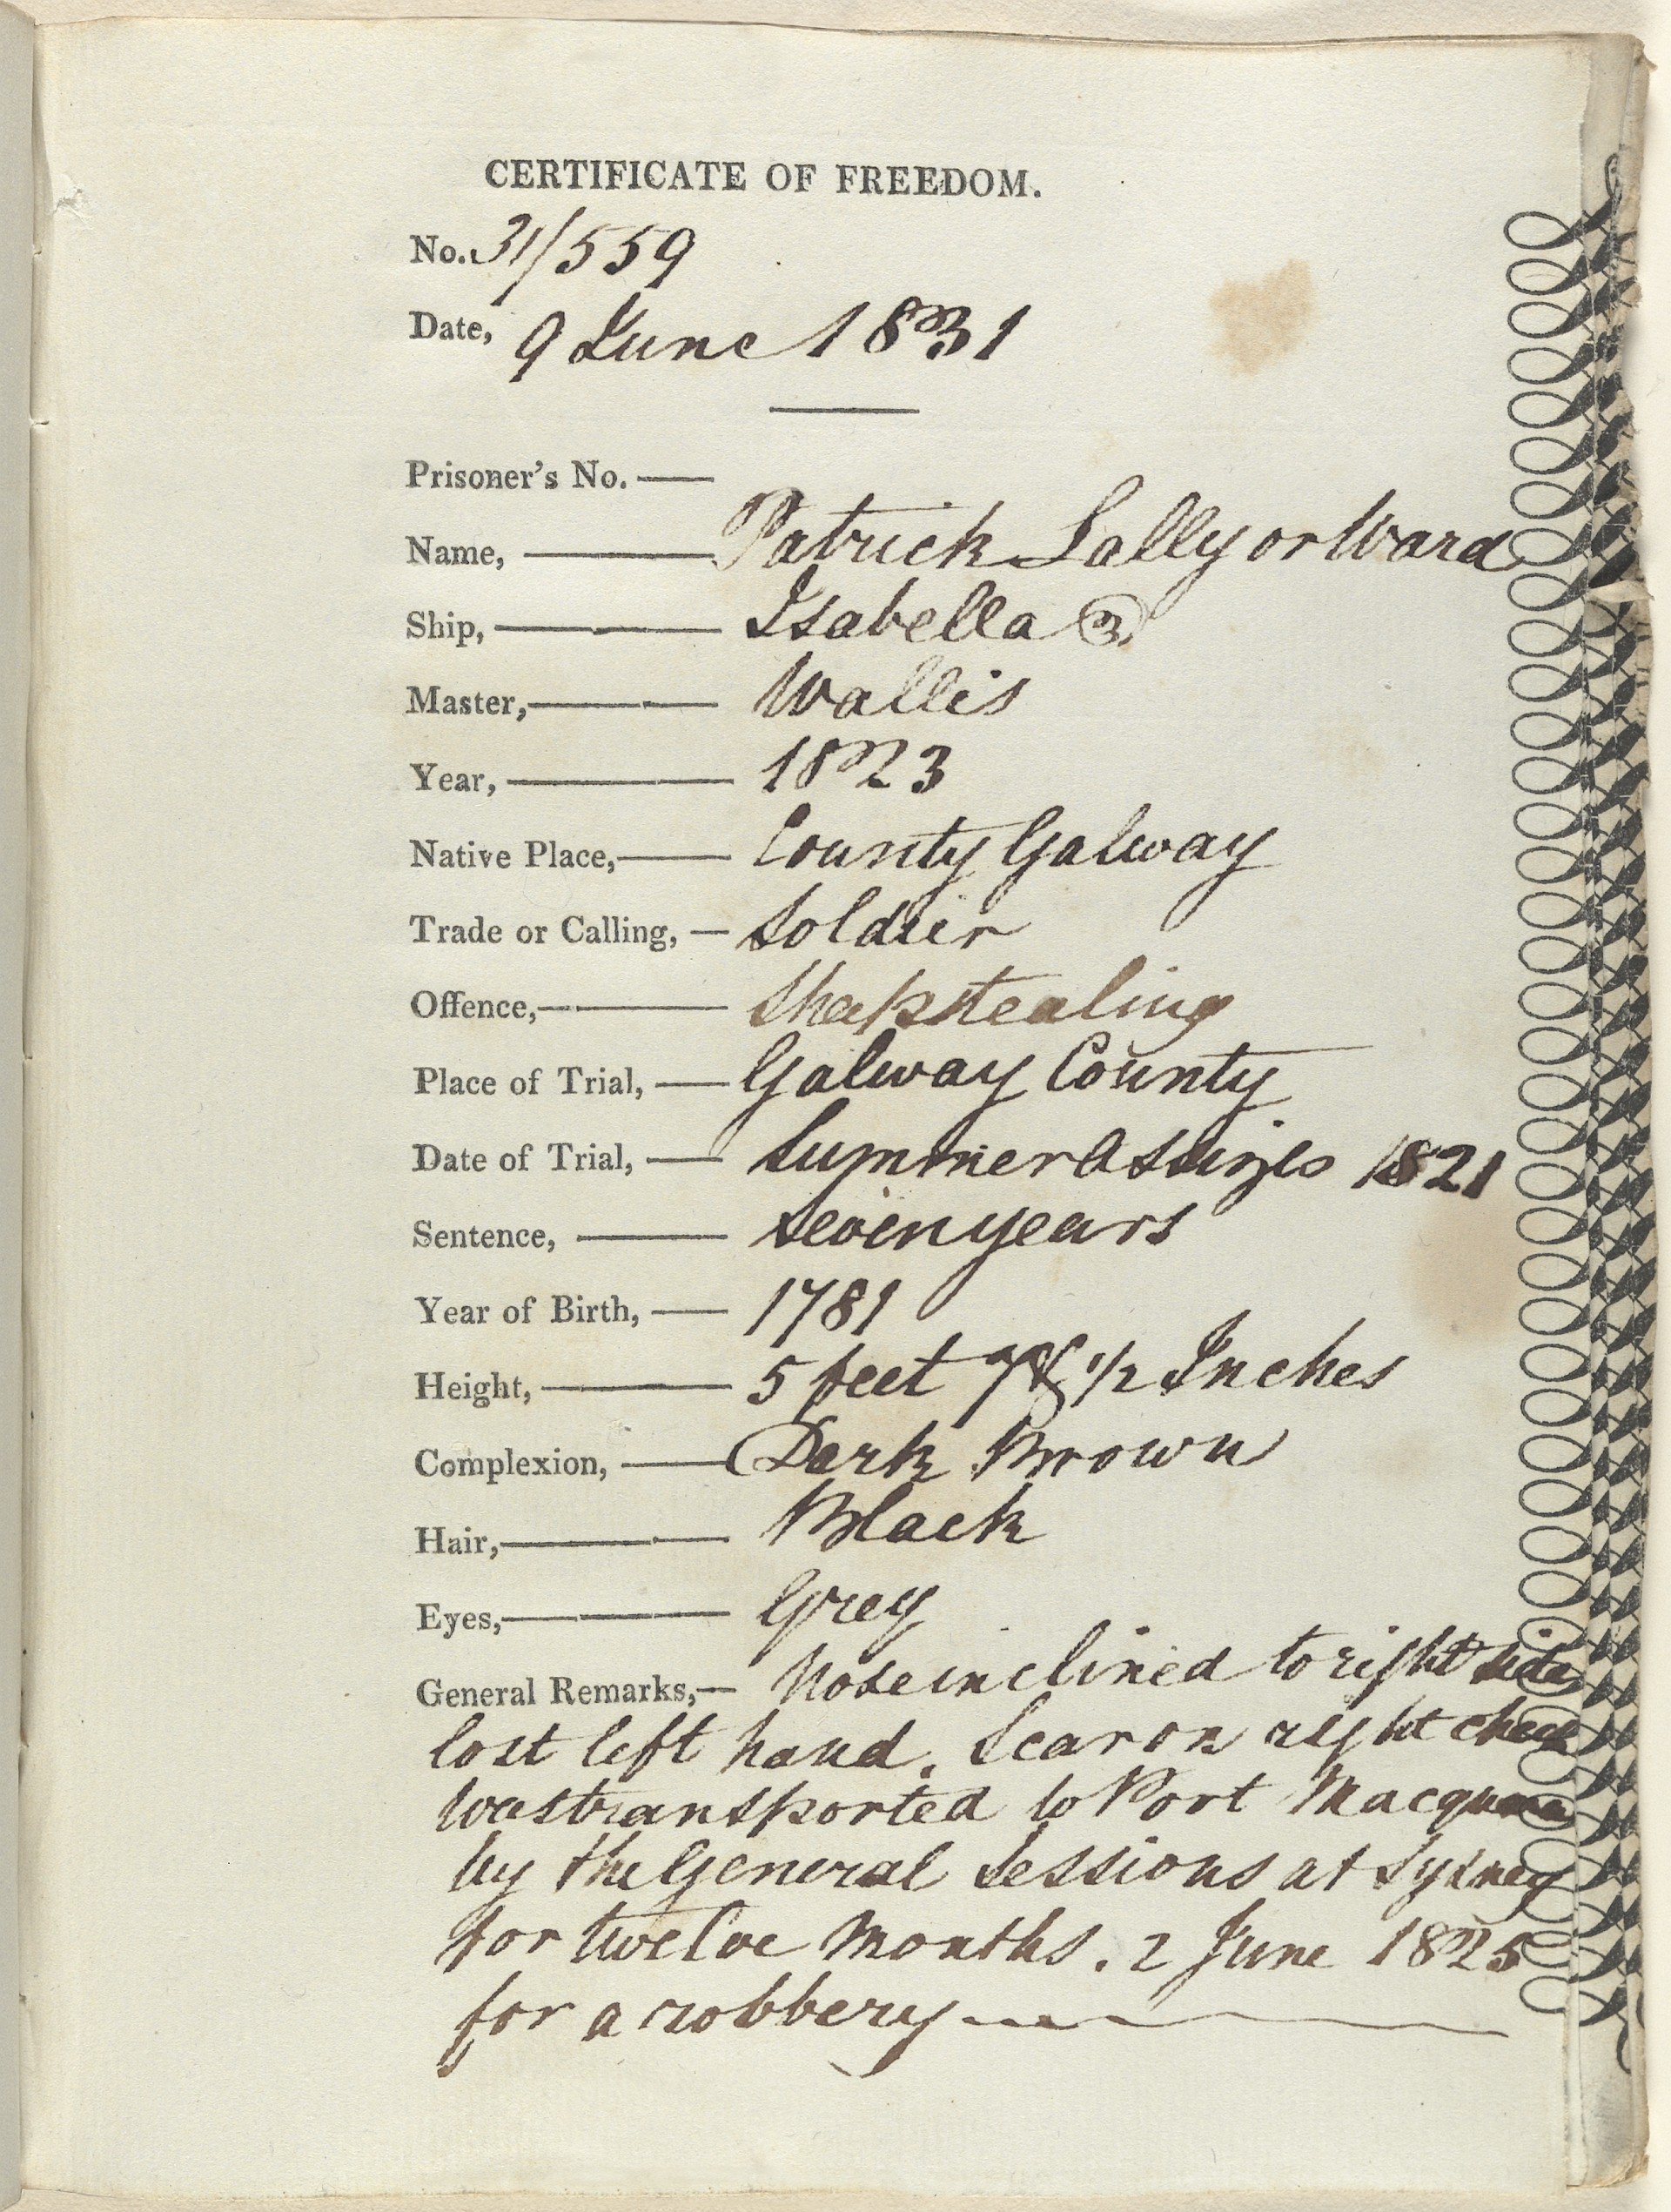 CERTIFICATE OF FREEDOM.
No. 31/559
Date, 9 June 1831
Prisoner's No. —
Name, — Patrick Lally or Ward
Ship, — Isabella (3)
Master, — Wallis
Year, — 1823
Native Place, — County Galway
Trade or Calling, — Soldier
Offence, — Sheepstealing
Place of Trial, — Galway County
Date of Trial, — Summer Assizes 1821
Sentence, — Seven years
Year of Birth, — 1781
Height, — 5 feet 7 & 1/2 Inches
Complexion, — Dark Brown
Hair, — Black
Eyes, — Grey
General Remarks, — Nose inclined to right side
lost left hand. Scar on right cheek
was transported to Port Macquarie
by the General Sessions at Sydney
for twelve Months. 2 June 1825
for a robbery